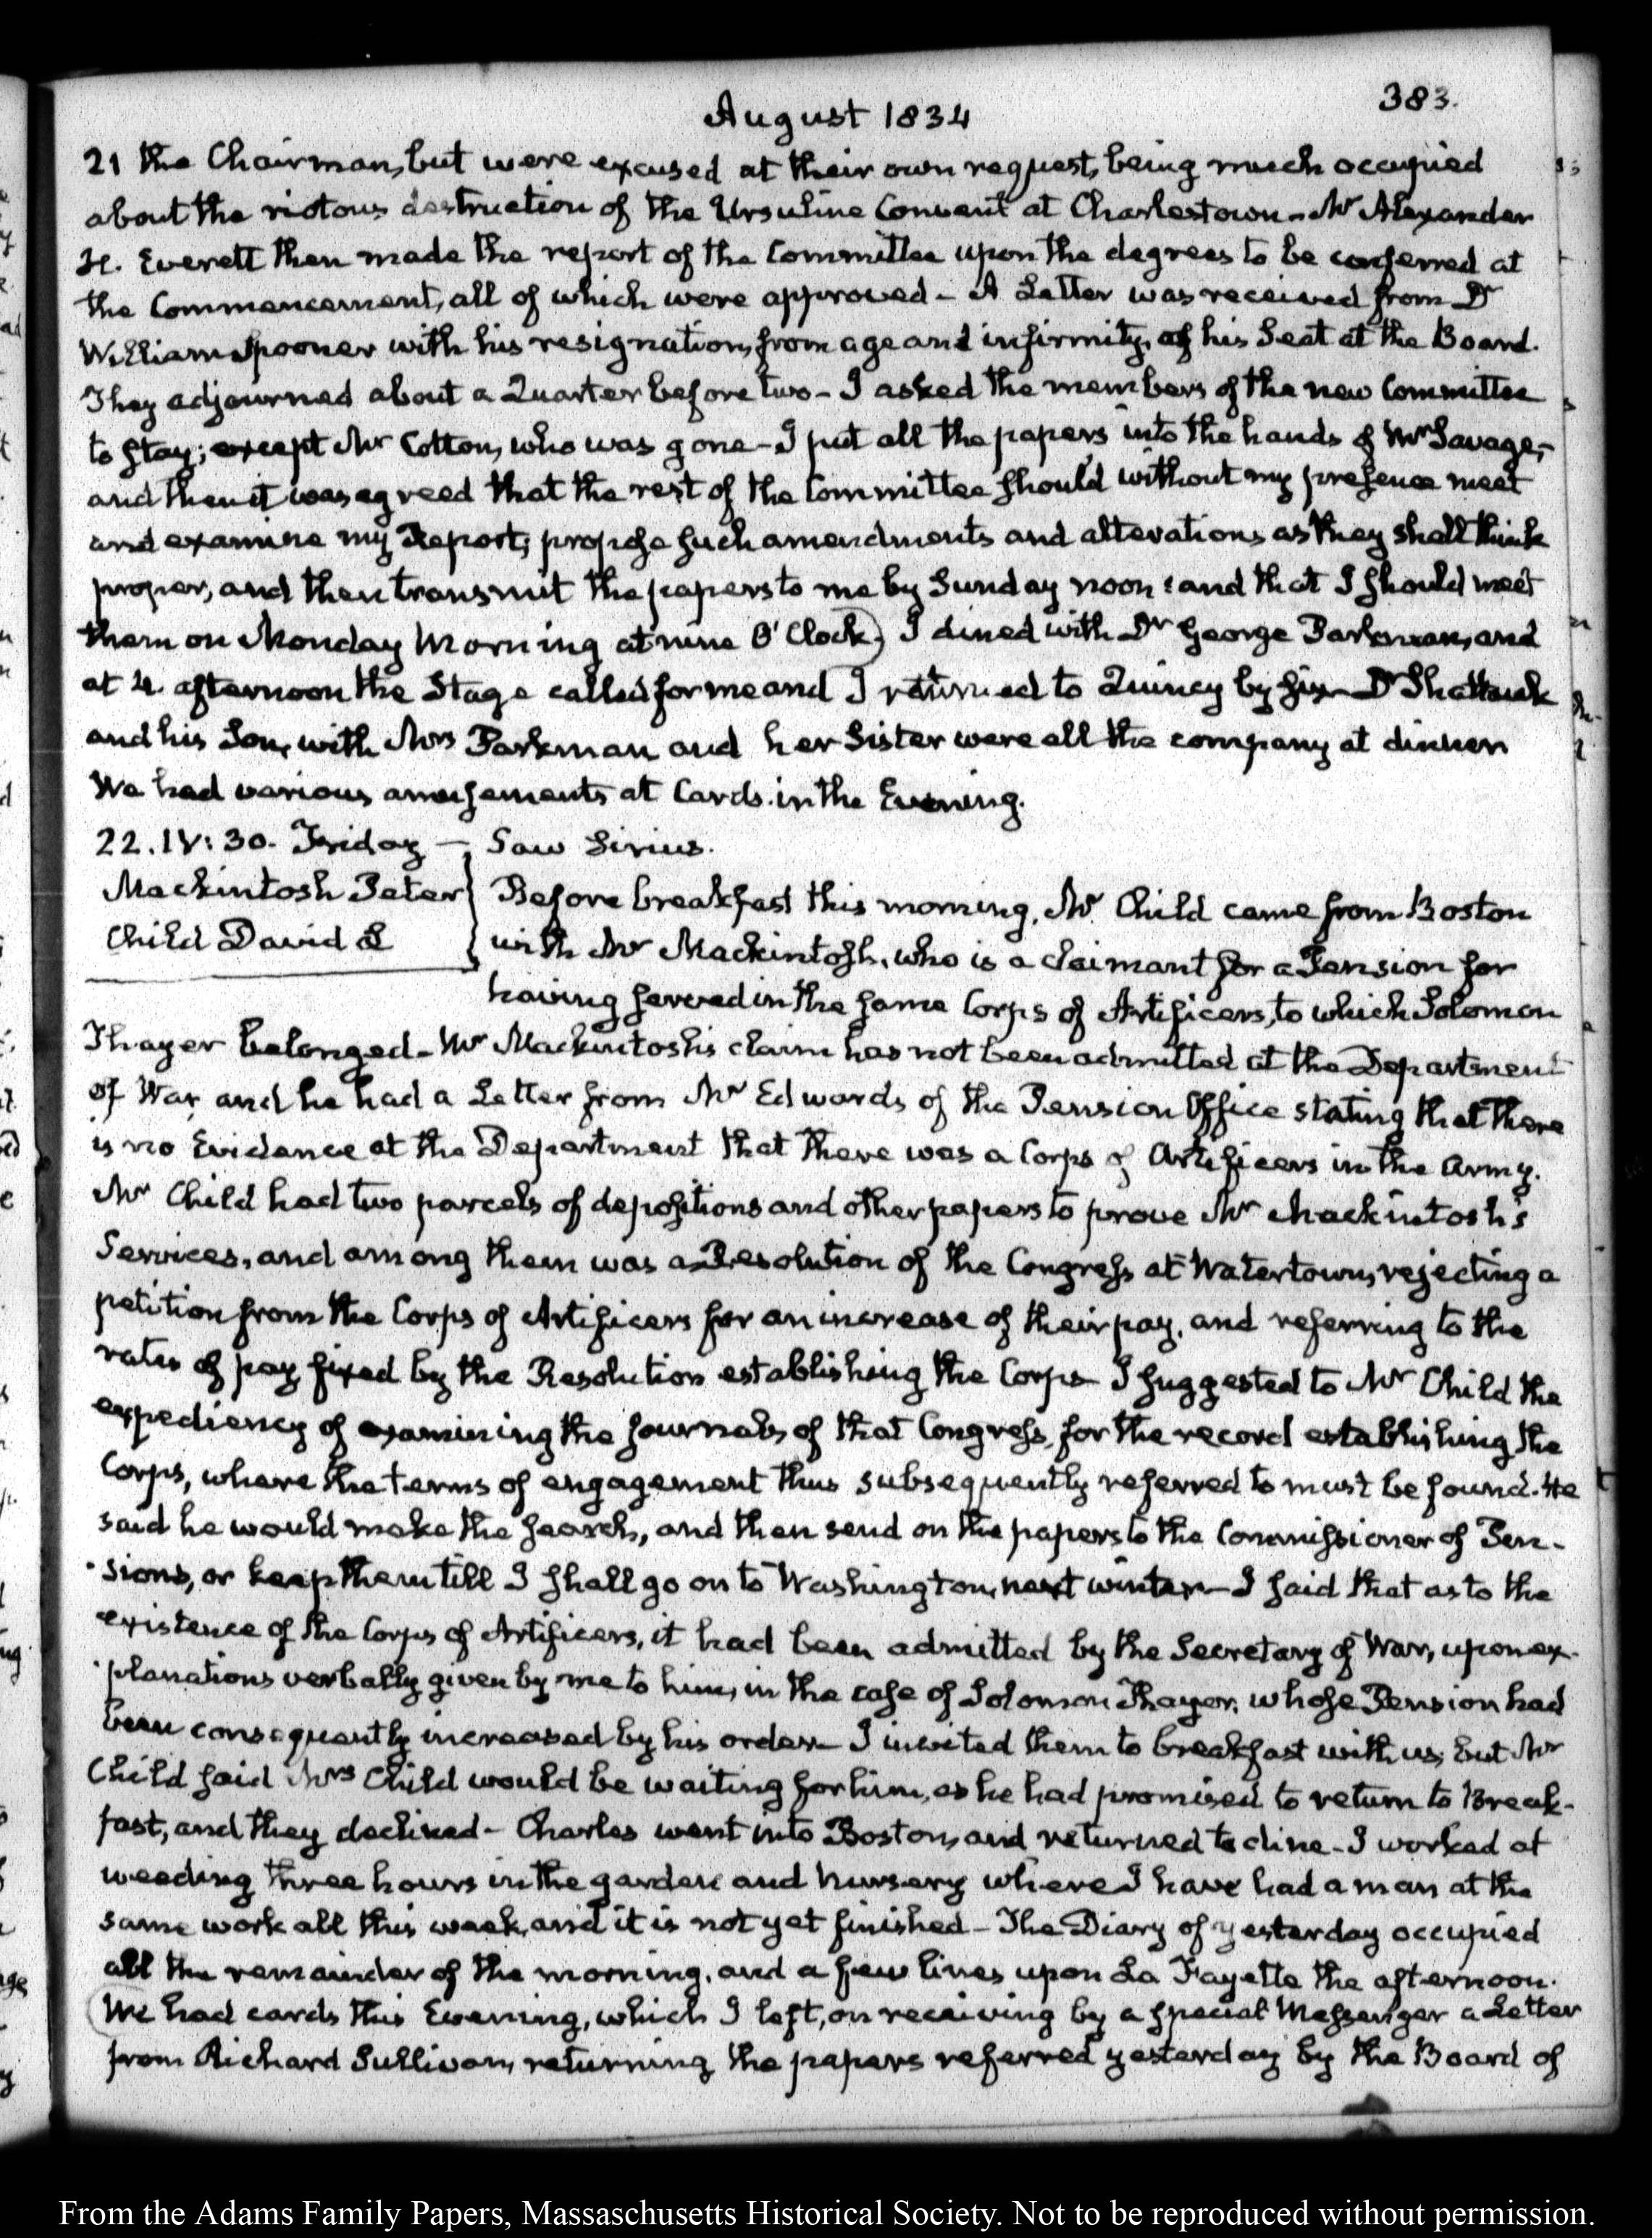 383.
August 1834
21 the Chairman, but were excused at their own request, being much occupied
about the riotous destruction of the Ursuline Convent at Charlestown - Mr Alexander
H. Everett then made the report of the Committee upon the degrees to be conferred at
the Commencement, all of which were approved - A Letter was received from Dr
William Spooner with his resignation, from age and infirmity, of his Seat at the Board.
They adjourned about a Quarter before two - I asked the members of the new Committee
to stay; except Mr Cotton, who was gone - I put all the papers into the hands of Mr Savage,
and then it was agreed that the rest of the Committee should without my presence meet
and examine my Report, propose such amendments and alterations as they shall think
proper, and then transmit the papers to me by Sunday noon: and that I should meet
them on Monday Morning at nine O'Clock. I dined with Dr George Parkman, and
at 4. afternoon the Stage called for me and I returned to Quincy by six - Dr Shattuck
and his Son, with Mrs Parkman and her Sister were all the company at dinner
We had various amusements at Cards in the Evening.
22. IV: 30. Friday - Saw Sirius.
Mackintosh Peter
Child David L
Before breakfast this morning, Mr Child came from Boston
with Mr Mackintosh, who is a claimant for a Pension for
having served in the same Corps of Artificers, to which Solomon
Thayer belonged - Mr Mackintosh's claim has not been admitted at the Department
of War, and he had a Letter from Mr Edwards of the Pension Office stating that there
is no Evidence at the Department that there was a Corps of Artificers in the Army.
Mr Child had two parcels of depositions and other papers to prove Mr Mackintosh's
Services, and among them was a Resolution of the Congress at Watertown, rejecting a
petition from the Corps of Artificers for an increase of their pay, and referring to the
rates of pay fixed by the Resolution establishing the Corps - I suggested to Mr Child the
expediency of examining the journals of that Congress, for the record establishing the
Corps, where the terms of engagement thus subsequently referred to must be found. He
said he would make the search, and then send on the papers to the Commissioner of Pen-
sions, or keep them till I shall go on to Washington, next winter - I said that as to the
existence of the Corps of Artificers, it had been admitted by the Secretary of War, upon ex-
planations verbally given by me to him, in the case of Solomon Thayer, whose Pension had
been consequently increased by his order - I invited them to breakfast with us; but Mr
Child said Mrs Child would be waiting for him, as he had promised to return to Break-
fast, and they declined - Charles went into Boston, and returned to dine - I worked at
weeding three hours in the garden and nursery where I have had a man at the
same work all this week, and it is not yet finished - The Diary of yesterday occupied
all the remainder of the morning, and a few lines upon La Fayette the afternoon.
We had cards this Evening, which I left, on receiving by a special Messenger a Letter
from Richard Sullivan, returning the papers referred yesterday by the Board of
From the Adams Family Papers, Massachusetts Historical Society. Not to be reproduced without permission.